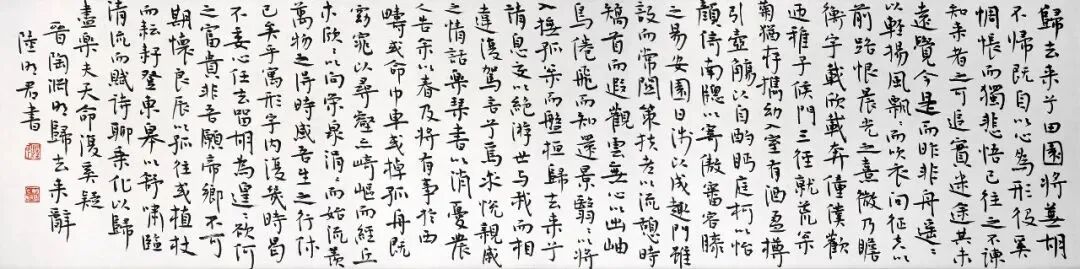 歸去来兮田園將蕪胡
不歸既自以心為形役奚
惆悵而獨悲悟已往之不諫
知来者之可追實迷途其未
遠覺今是而昨非舟遥〻
以輕揚風飄〻而吹衣问征夫以
前路恨晨光之熹微乃瞻
衡宇載欣載奔僮僕歡
迎稚子候門三徑就荒松
菊猶存携幼入室有酒盈樽
引壺觴以自酌眄庭柯以怡
顔倚南牕以寄傲審容膝
之易安園日涉以成趣門雖
設而常關策扶老以流憩時
矯首而遐觀雲無心以出岫
鳥倦飛而知還景翳〻以將
入撫孤松而盤桓歸去来兮
請息交以絶游世与我而相
違復駕言兮焉求悦親戚
之情話樂琴書以消憂農
人告余以春及將有事於西
疇或命巾車或棹孤舟既
窈窕以尋壑亦崎嶇而經丘
木欣〻以向榮泉涓〻而始流羨
萬物之得時感吾生之行休
已矣乎寓形宇内復幾時曷
不委心任去留胡為遑〻欲何
之富貴非吾願帝鄉不可
期懷良辰以孤往或植杖
而耘耔登東皋以舒嘯臨
清流而賦詩聊乘化以歸
盡樂夫天命復奚疑
晉陶淵明歸去来辭
陸明君書